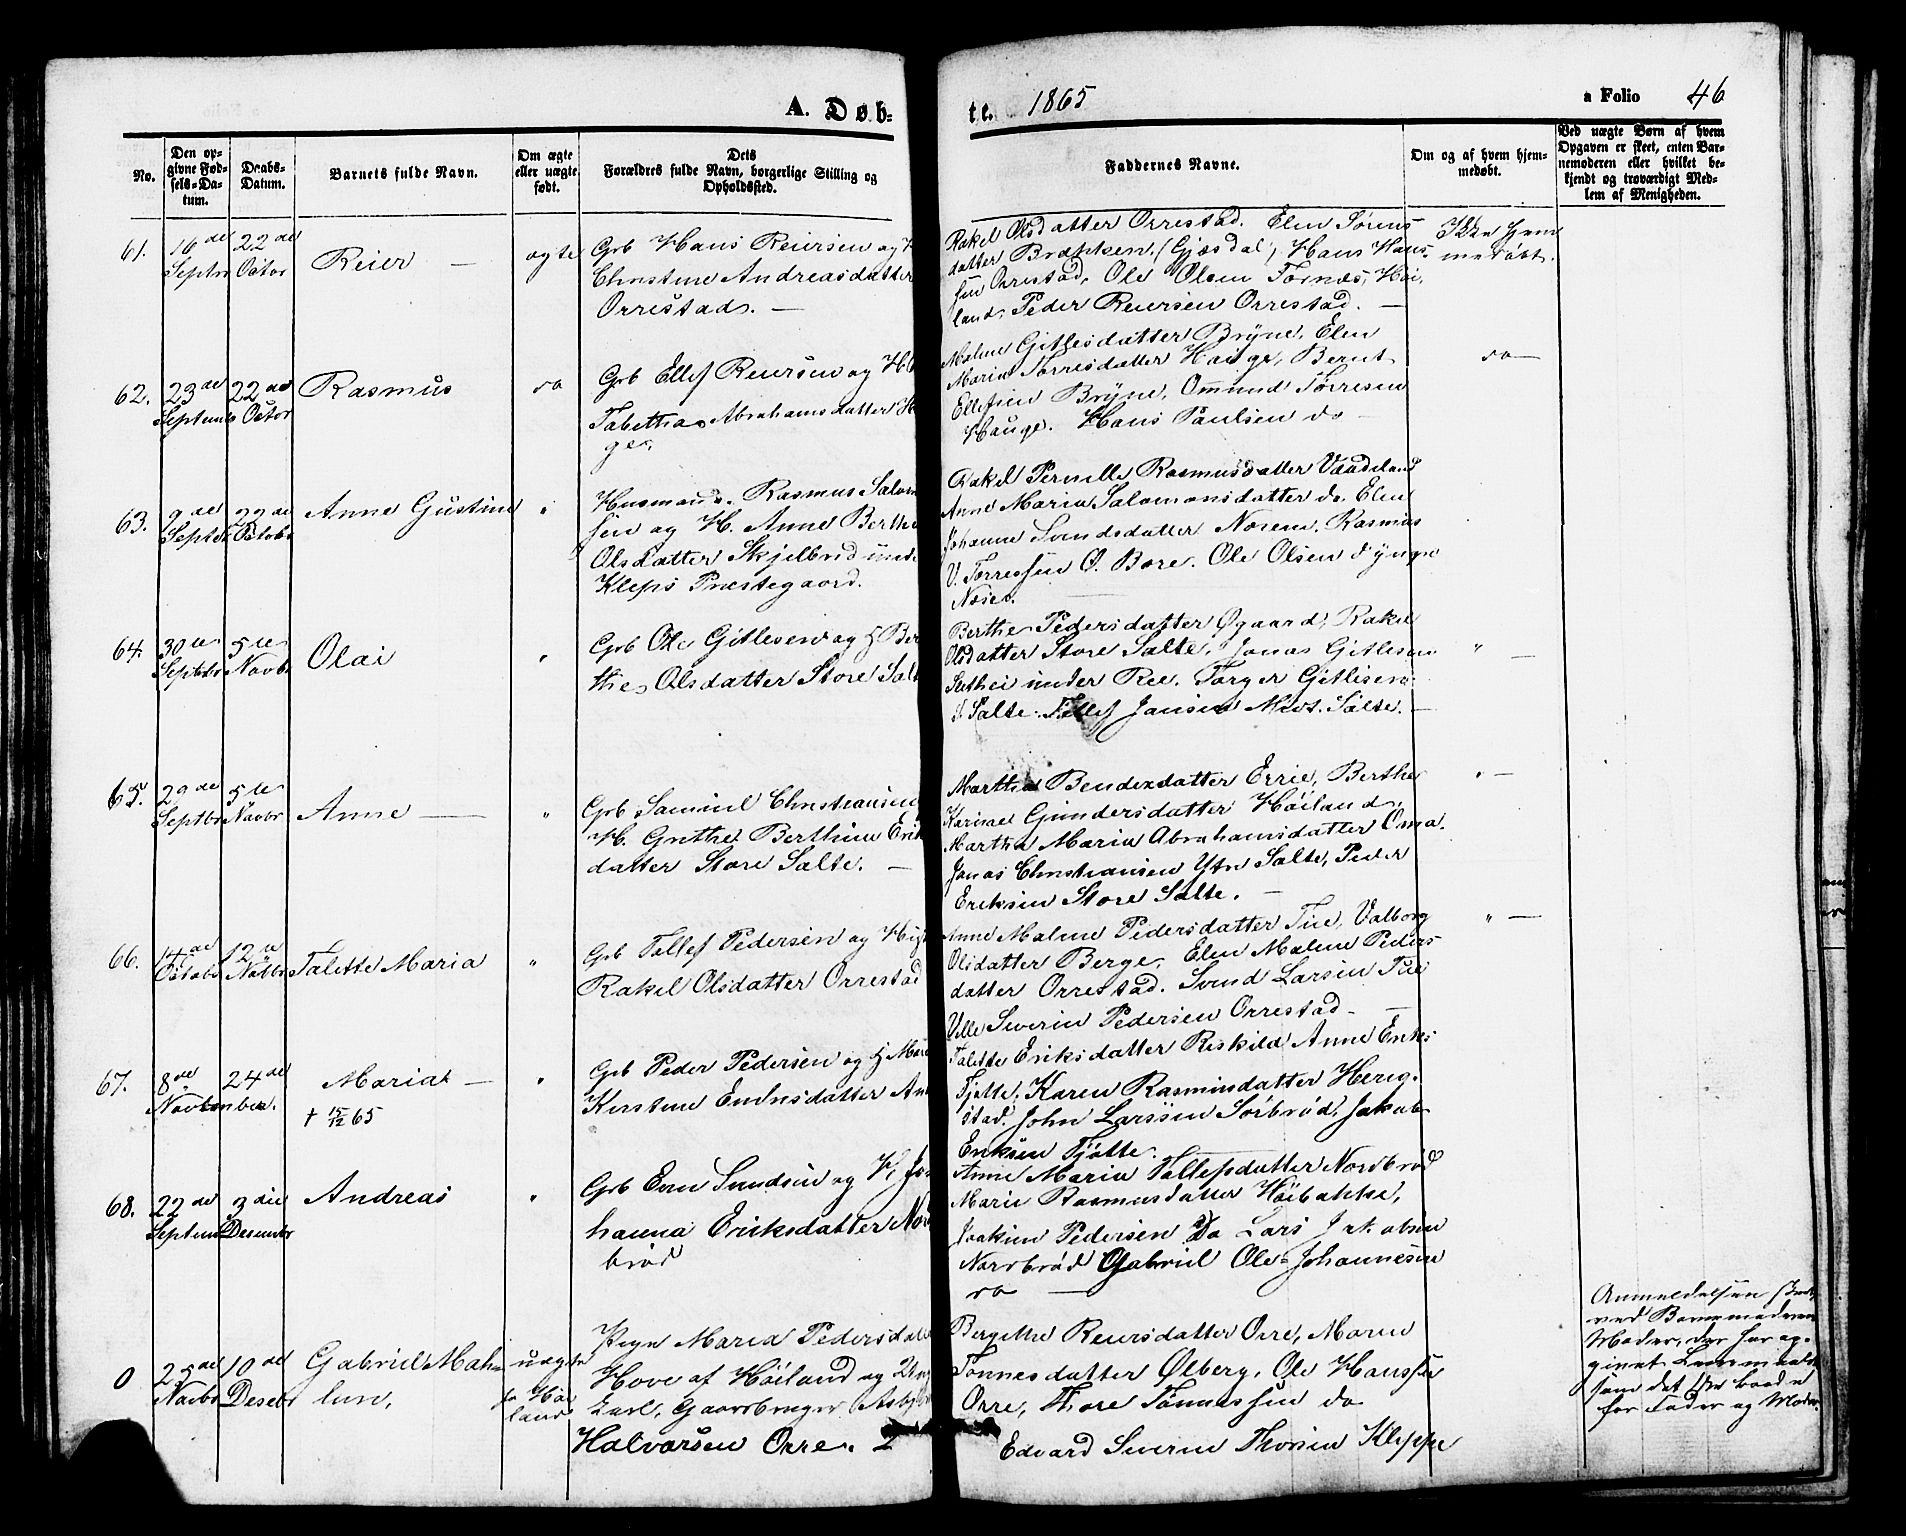 A. Døb-
te. 1865
a Folio 46
No.
Den op-
givne Fød-
sels-Da-
tum.
Daabs-
Datum.
Barnets fulde Navn.
Om ægte
eller uægte
født.
Dets
Forældres fulde Navn, borgerlige Stilling og
Opholdssted.
Faddernes Navne.
Om og af hvem hjem-
medøbt.
Ved uægte Børn af hvem
Opgaven er skeet, enten Bar-
nemoderen eller hvilket be-
kjendt og troværdigt Med-
lem af Menigheden.
61.
16de
Septbr
22de
Octbr
Reier —
ægte
Grb Hans Reiersen og
Christine Andreasdatter
Orrestad. —
Rakel Olsdatter Orrestad. Elen Sørens-
datter Brækken (Gjesdal), Hans Han-
sen Orrestad, Ole Olsen Tornæs, Høi-
land, Peder Reiersen Orrestad. —
Ikke hjem
medøbt.
62.
23de
Septemb
22de
Octor
Rasmus
do
Grb Ellef Reiersen og H
Tabetha Abrahamsdatter H
ge.
Malene Gitlesdatter Bryne, Elen
Maria Torresdatter Hauge, Bernt
Ellefsen Bryne, Ommund Torresen
Hauge. Hans Paulsen do
do —
63.
9de
Septbr
22de
Octobr
Anne Gustine
"
Husmand. Rasmus Salom
sen og H. Anne Berthe
Olsdatter Skjelbred unde
Kleps Præstegaard.
Rakel Pernille Rasmusdatter Vaadeland
Anne Maria Salomonsdatter do. Elen
Johanne Svendsdatter Noreim, Rasmus
V. Torressen O. Bore. Ole Olsen
64.
30te
Septbr
5te
Novbr
Olai
"
Grb Ole Gitlesen og H Ber
the Olsdatter Store Salt
Berthe Pedersdatter Øgaard, Rakel
Olsdatter Store Salte, Jonas Gitlesen
under Ree. Torger Gitlesen
S. Salte. Tollef Jansen Salte. —
" —
65.
29de
Septbr
5te
Novbr
Anne —
"
Grb Samuel Christiansen
H. Grethe Berthine Erik
datter Store Salte. —
Martha Bendixdatter Errie, Berthe
Karine Gundersdatter Høiland,
Martha Maria Abrahamsdatter Oma.
Jonas Christiansen Ytre Salte, Peder
Eriksen Store Salte. —
" —
66.
14de
Octobr
12te
Novbr
Talette Maria
"
Grb Tollef Pedersen og H
Rakel Olsdatter Orrestad
Anne Malene Pedersdatter Tue, Valborg
Olsdatter Berge, Elen Malene Peders-
datter Orrestad. Svend Larsen Tue
Ville Severin Pedersen Orrestad —
" —
67.
8de
24de
November.
Maria —
† 15/12 65
"
Grb Peder Pedersen og H
Kirstine
Talette Eriksdatter Riskild Anne Eriks
Tjøtte, Karen Rasmusdatter Herig-
stad. John Larssen Sørbrød, Jakob
Eriksen Tjøtte.
68.
22de
Septemb
3die
Desembr
Andreas
"
Grb Even Svendsen og H. Jo-
hanna Eriksdatter Nor
brød
Anne Maria Tollefsdatter Nordbrød
Marie Rasmusdatter Høibakke,
Joakim Pedersen Do Lars Jakobsen
Nordbrød Gabriel Ole Johannesen
do —
0
25de
Novbr
10de
Desebr
Gabriel
uægte
fr Høi
land
Pige Maria Pedersdatt
Hove af Høiland og Ung
karl, Gaardbruger Asbjørn
Halvorsen Orre. 2
Bergithe Reiersdatter Orre, Maren
Tønnesdatter Ølberg, Ole Hanssen
Orre, Thore Tønnessen do
Edvard Severin Thorsen Kleppe
Anmeldelsen skeet
ved Barnemoderens
Moder, der har op-
givet
som det 1ste baade
for Fader og Moder